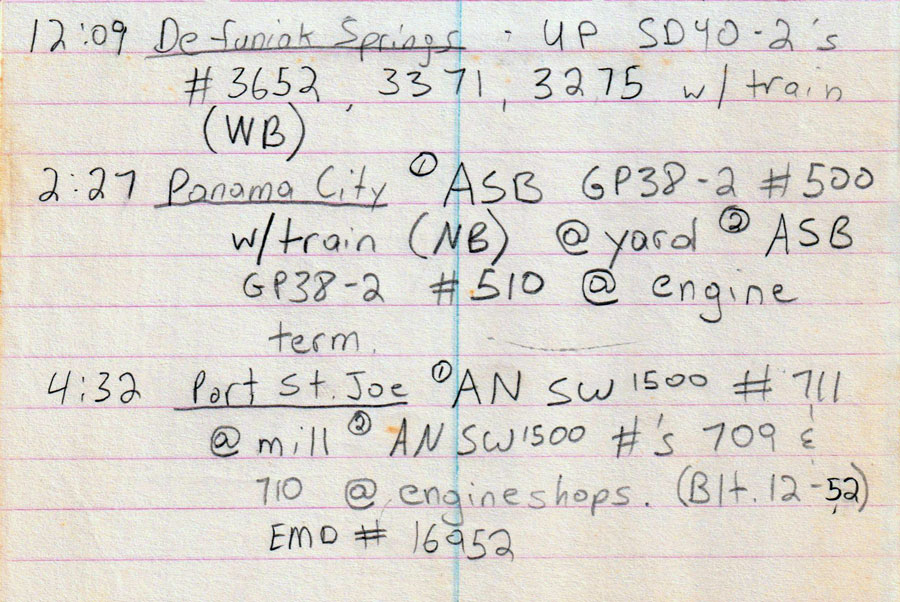 12:09 De funiak Springs - UP SD40-2's
#3652, 3371, 3275 w/train
(WB)
2:27 Panama City ① ASB GP38-2 #500
w/train (NB) @yard ② ASB
GP38-2 #510 @ engine
term.
4:32 Port St. Joe ① AN SW1500 #711
@mill ② AN SW1500 #'s 709 &
710 @ engineshops. (Blt. 12-52)
EMD # 16952